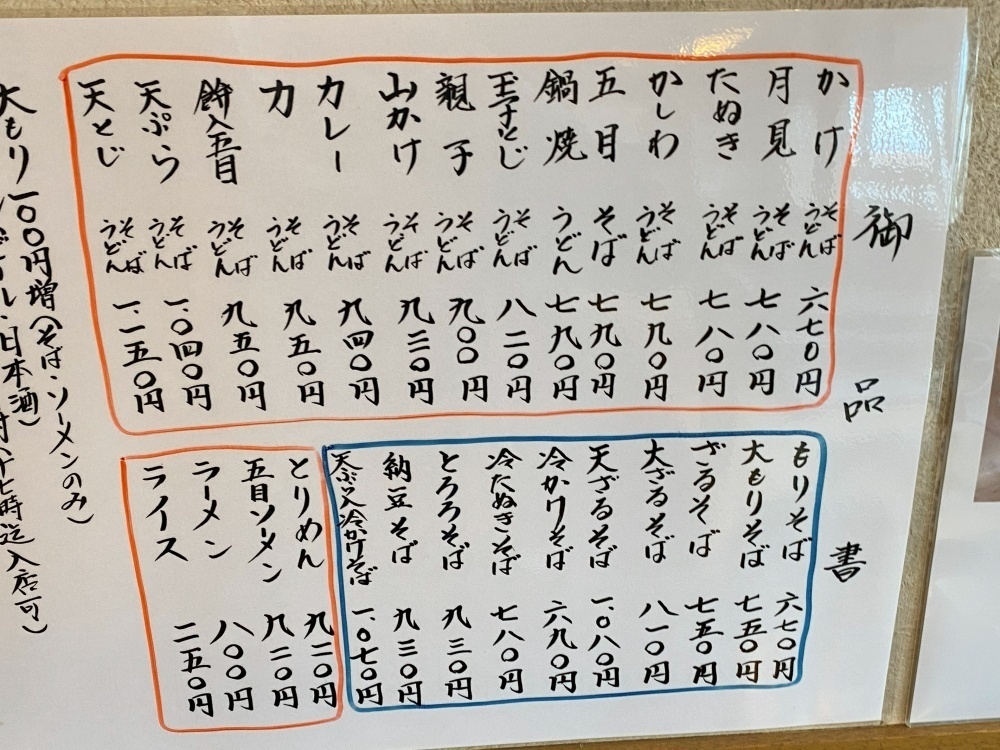 御品書
かけ そば うどん 六七〇円
月見 そば うどん 七八〇円
たぬき そば うどん 七八〇円
かしわ そば うどん 七九〇円
五目 そば 七九〇円
鍋焼 うどん 七九〇円
玉子とじ そば うどん 八二〇円
親子 そば うどん 九〇〇円
山かけ そば うどん 九三〇円
カレー そば うどん 九四〇円
力 そば うどん 九五〇円
餅入五目 そば うどん 九五〇円
天ぷら そば うどん 一、〇四〇円
天とじ そば うどん 一、一五〇円
もりそば 六七〇円
大もりそば 七五〇円
ざるそば 七五〇円
大ざるそば 八一〇円
天ざるそば 一、〇八〇円
冷かけそば 六九〇円
冷たぬきそば 七八〇円
とろろそば 九三〇円
納豆そば 九三〇円
天ぷら入冷かけそば 一、〇七〇円
とりめん 九二〇円
五目ソーメン 九二〇円
ラーメン 八〇〇円
ライス 二五〇円
大もり一〇〇円増(そば・ソーメンのみ)
ル・日本酒)
時、十七時迄入店可)